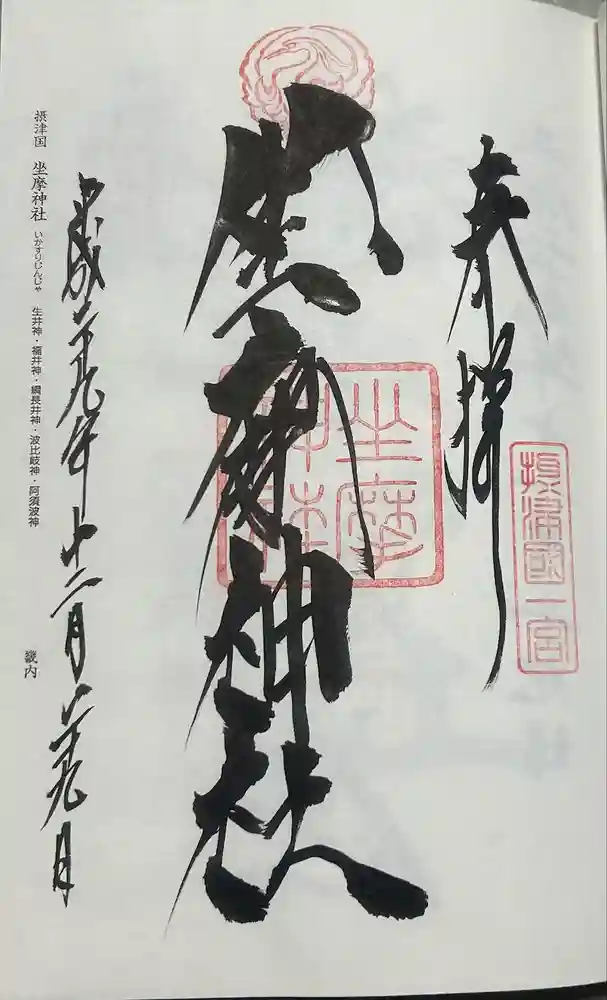 奉拝
摂津國一宮
坐摩神社
坐摩神社
平成二十九年十二月二十九日
摂津国 坐摩神社 いかすりじんじゃ 生井神・福井神・綱長井神・波比岐神・阿須波神
畿内